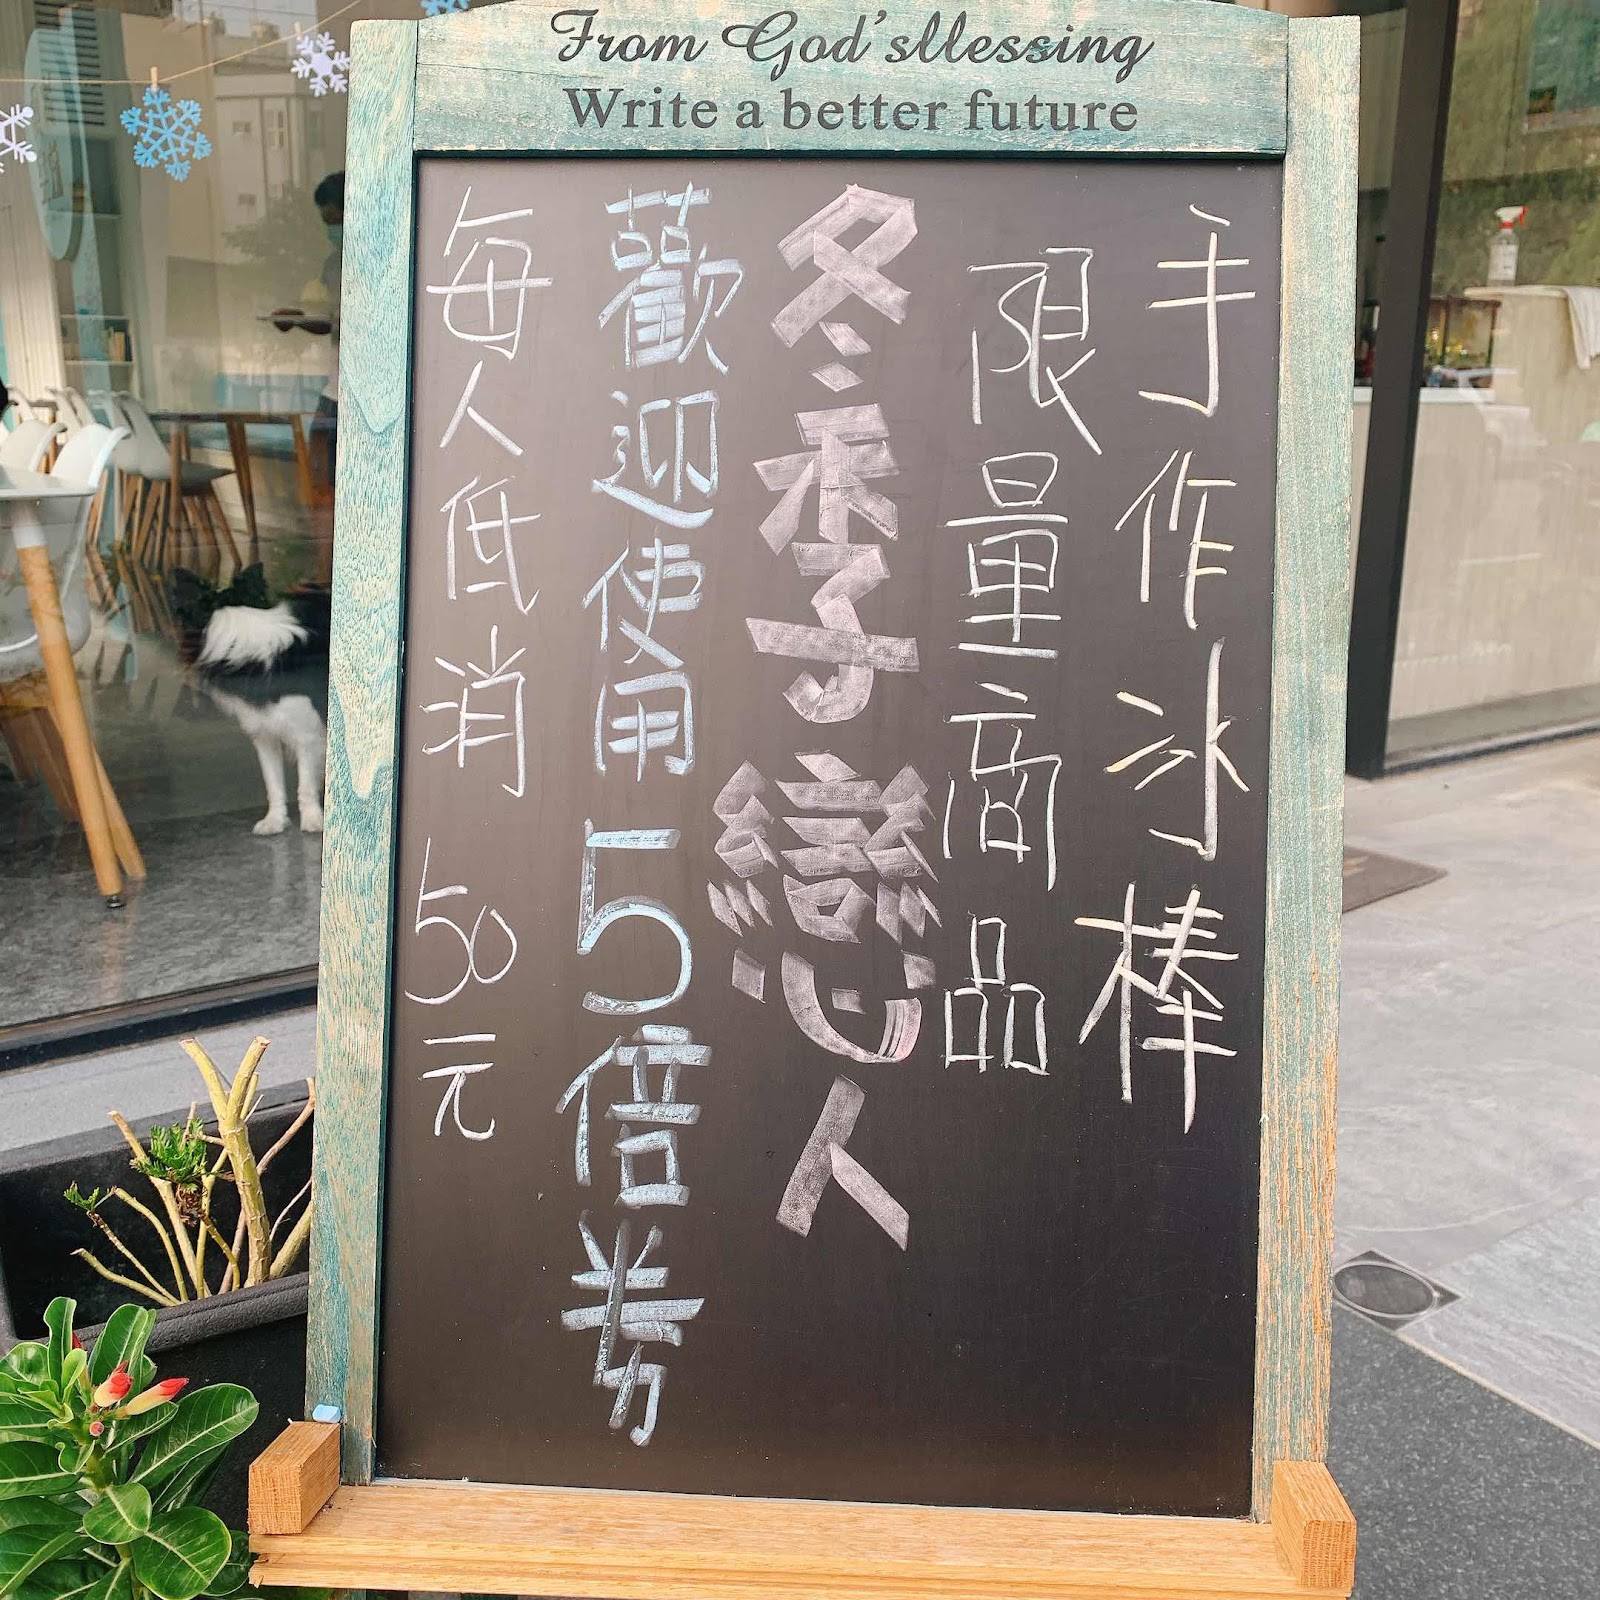 From God'sllessing
Write a better future
手作冰棒
限量商品
冬季戀人
歡迎使用5倍券
每人低消50元